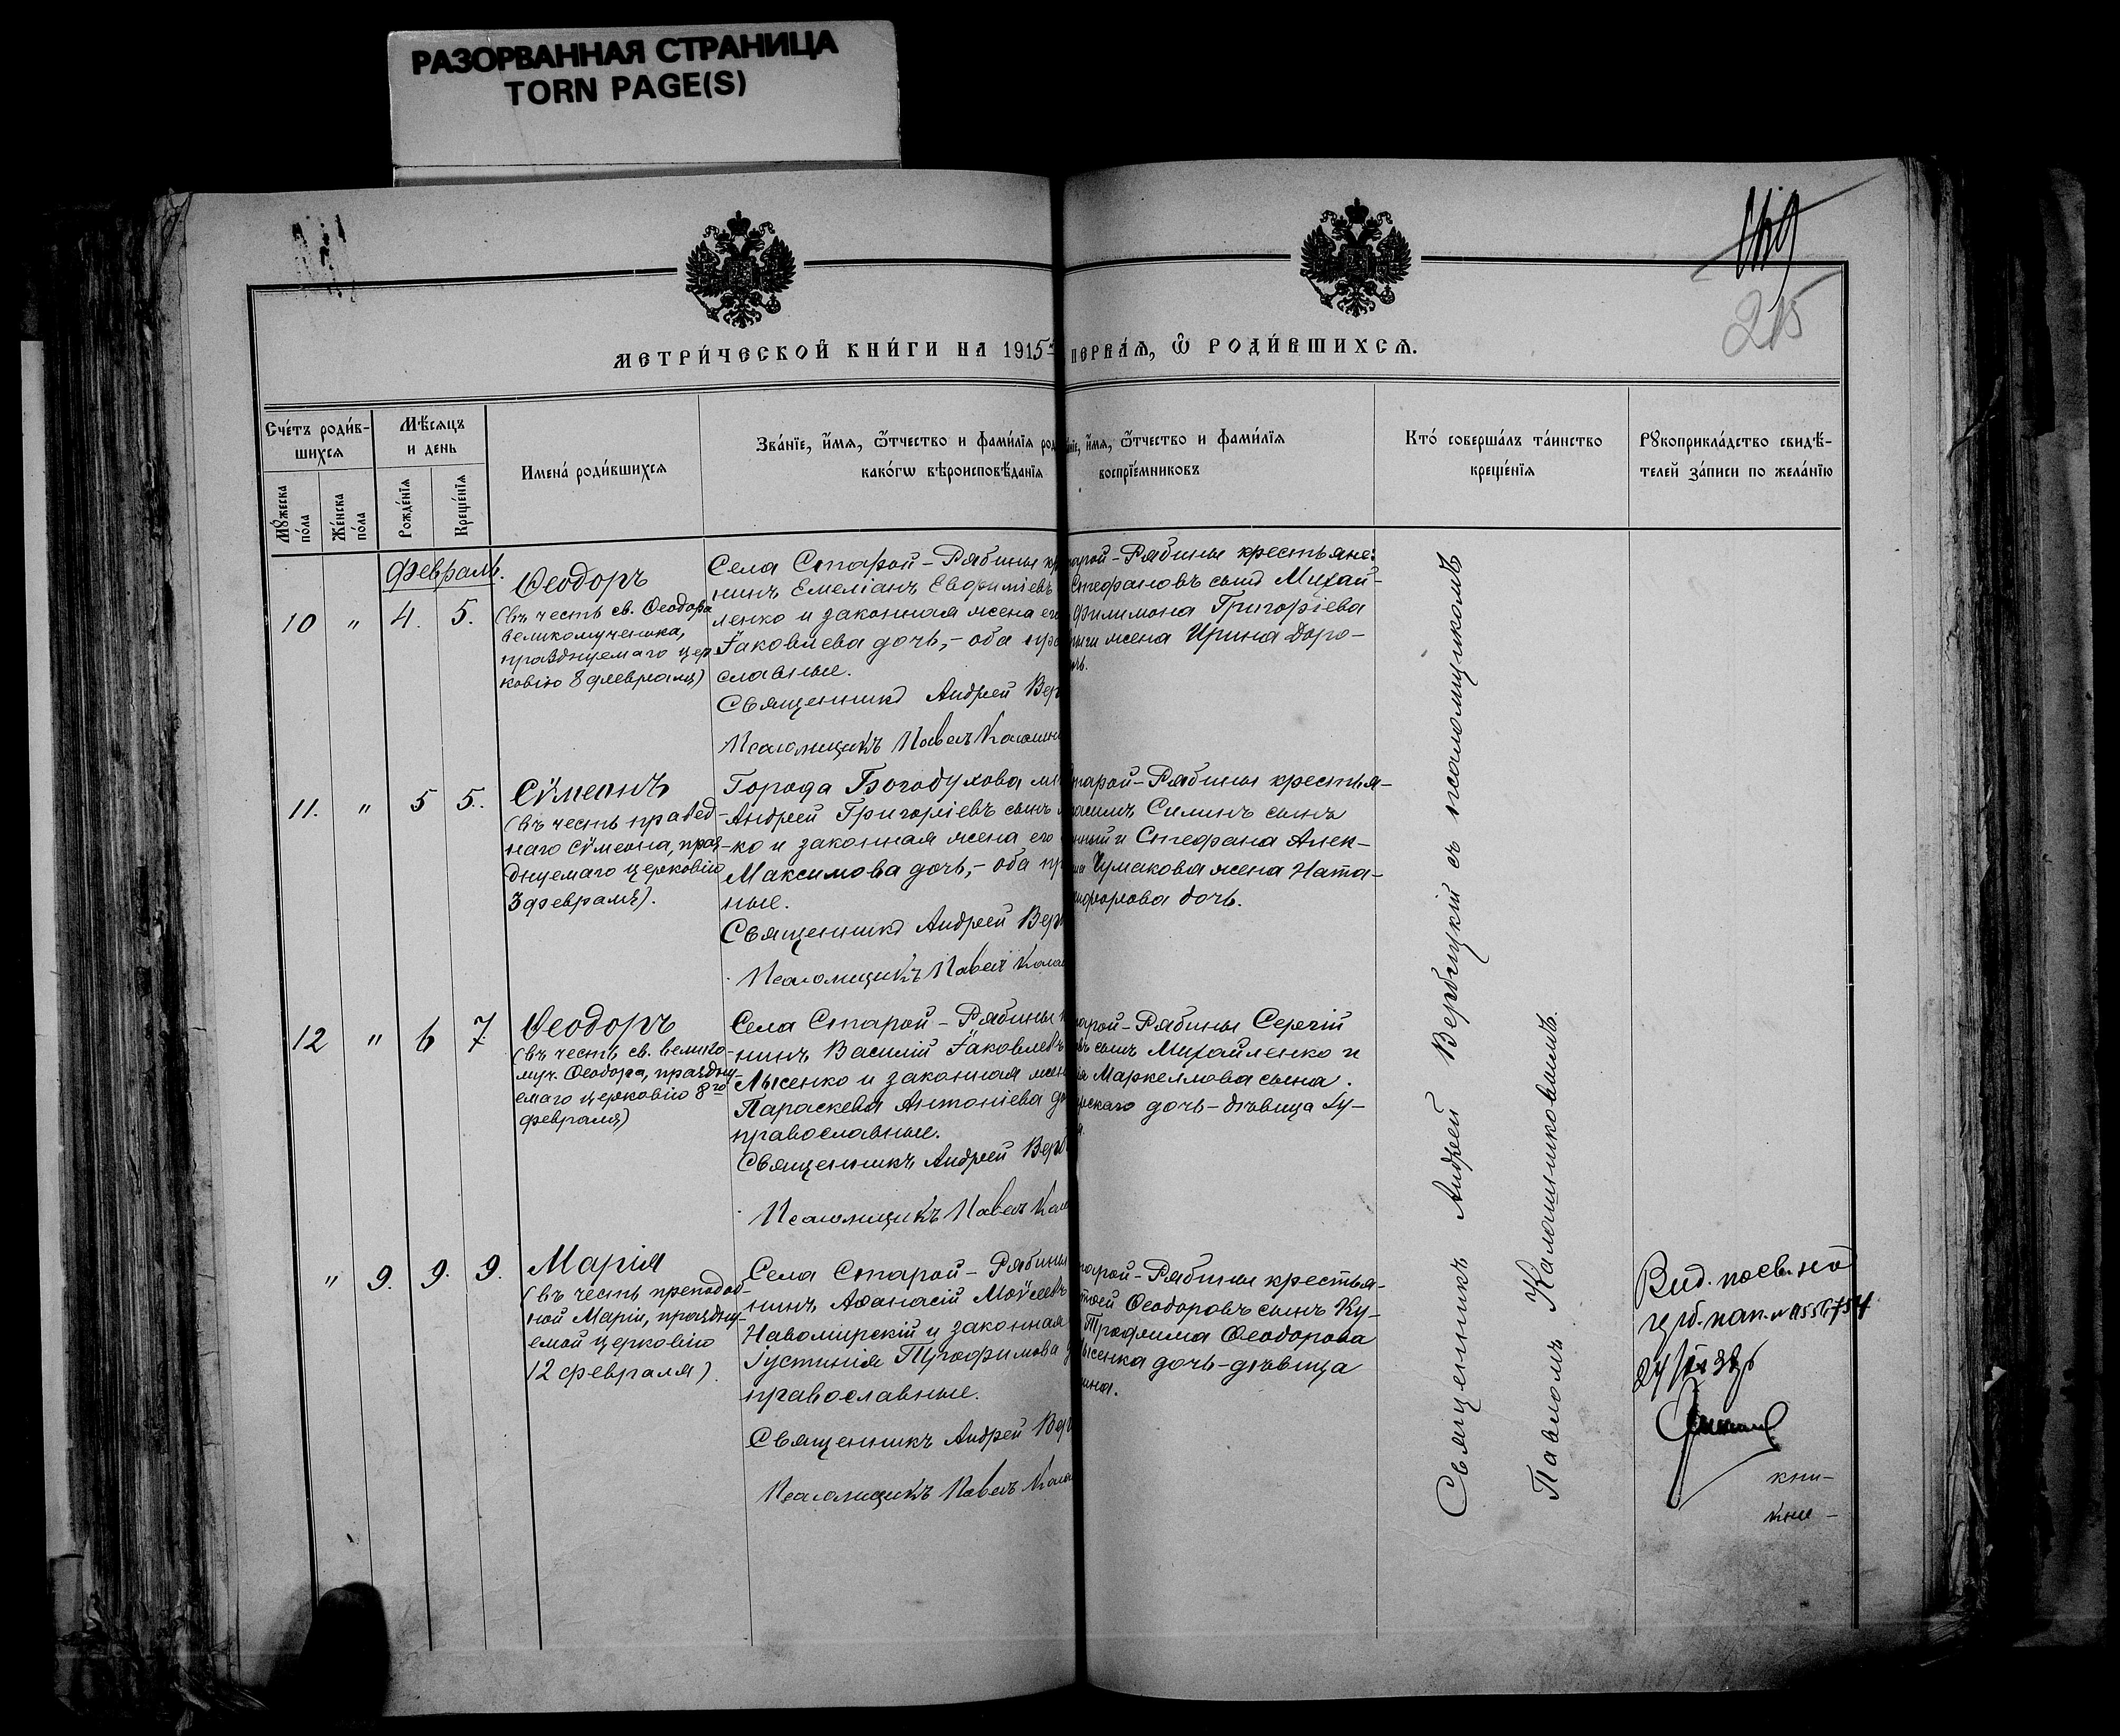 РАЗОРВАННАЯ СТРАНИЦА
TORN PAGE(S)
215
МЕТРИ́ЧЕСКОЙ КНИ́ГИ НА 1915
ПЕРВА́Я, Ѿ РОДИ́ВШИХСЯ.
Сче́тъ роди́в-
шихся
Мѣ́сяцъ
и день
Мꙋ́жеска
по́ла
Же́нска
по́ла
Рожде́нїя
Креще́нїя
Имена̀ роди́вшихся
Зва́нїе, и́мя, ѿтчество и фами́лїя род
како́гѡ вѣроисповѣ́данїя
нїе, и́мя, ѿтчество и фами́лїя
воспрїе́мниковъ
Кто̀ соверша́лъ та́инство
креще́нїя
Рꙋкоприкла́дство свидѣ́-
телей за́писи по жела́нїю
Февраль.
10 " 4. 5.
Ѳеодоръ
(въ честь св. Ѳеодора
великомученика,
празднуемаго цер
ковію 8 февраля)
Села Старой-Рябины кр
нинъ Емеліанъ Евѳиміевъ
ленко и законная жена его
Іаковлева дочь,- оба пра
славные.
Священникъ Андрей Вер
Псаломщикъ Павелъ Калашни
арой-Рябины крестьяне:
Стефановъ сынъ Михай-
Филимона Григоріева
жена Ирина Доро-
чь.
11. " 5 5.
Сѵмеонъ
(въ честь правед-
наго Сѵмеона, праз-
днуемаго церковію
3 февраля).
Города Богодухова мѣ
Андрей Григоріевъ сынъ
ко и законная жена его
Максимова дочь,- оба пр
ные.
Священникъ Андрей Вер
Псаломщикъ Павелъ Кала
тарой-Рябины крестья-
Силинъ сынъ
и Стефана Алек-
Чумакова жена Ната-
форова дочь.
12 " 6 7.
Ѳеодоръ
(въ честь св. велико-
муч. Ѳеодора, праздну-
емаго церковію 8го
февраля)
Села Старой-Рябины
нинъ Василій Іаковлевъ
Лысенко и законная жен
Параскева Антоніева д
православные.
Священникъ Андрей Верб
Псаломщикъ Павелъ Кал
арой-Рябины Сергій
въ сынъ Михайленко и
ія Маркеллова сына.
рскаго дочь-дѣвица Лу-
" 9. 9. 9.
Марія
(въ честь преподоб-
ной Маріи, праздну-
емой церковію
12 февраля).
Села Старой-Рябины
нинъ Аѳанасій Моѵсеевъ
Навомирскій и законная
Іустинія Трофимова д
православные.
Священникъ Андрей Вер
Псаломщикъ Павелъ Кала
арой-Рябины крестья-
Ѳеодоровъ сынъ Ку-
Трофима Ѳеодорова
ысенка дочь-дѣвица
ина.
Священникъ Андрей Вербицкій съ псаломщикомъ
Павломъ Калашниковымъ.
Вид.
24
кни-